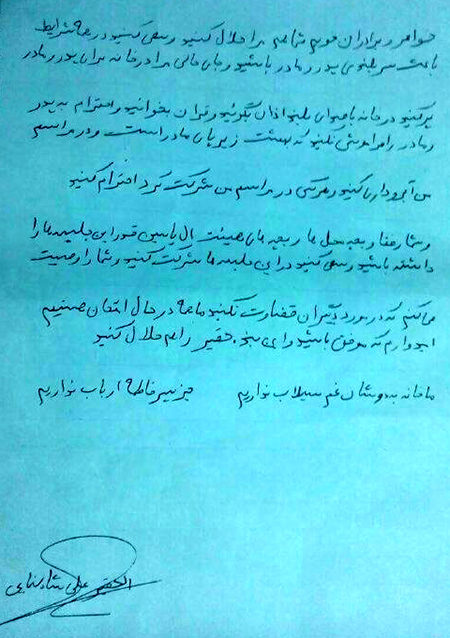 خواهر و برادران خوبم شما هم مرا حلال کنید و سعی کنید در همه شرایط
باعث سربلندی پدر و مادر باشید و جای خالی مرا در خانه برای پدر و مادر
پر کنید در خانه با صدای بلند اذان بگوئید و قرآن بخوانید و احترام به پدر
و مادر را فراموش نکنید که بهشت زیر پای مادر است و در مراسم
من آبرو داری کنید و هرکس در مراسم من شرکت کرد احترام کنید
و شما رفقا و بچه محل ها و بچه های هیئت آل یاسین قدر این جلسه ها را
داشته باشید و سعی کنید در این جلسه ها شرکت کنید و شما را وصیت
می کنم که در مورد دیگران قضاوت نکنید ما همه در حال امتحان هستیم
امیدوارم که موفق باشید و این بنده حقیر را هم حلال کنید
ما خانه به دوشان غم سیلاب نداریم جز پسر فاطمه ارباب نداریم
الحقیر علی